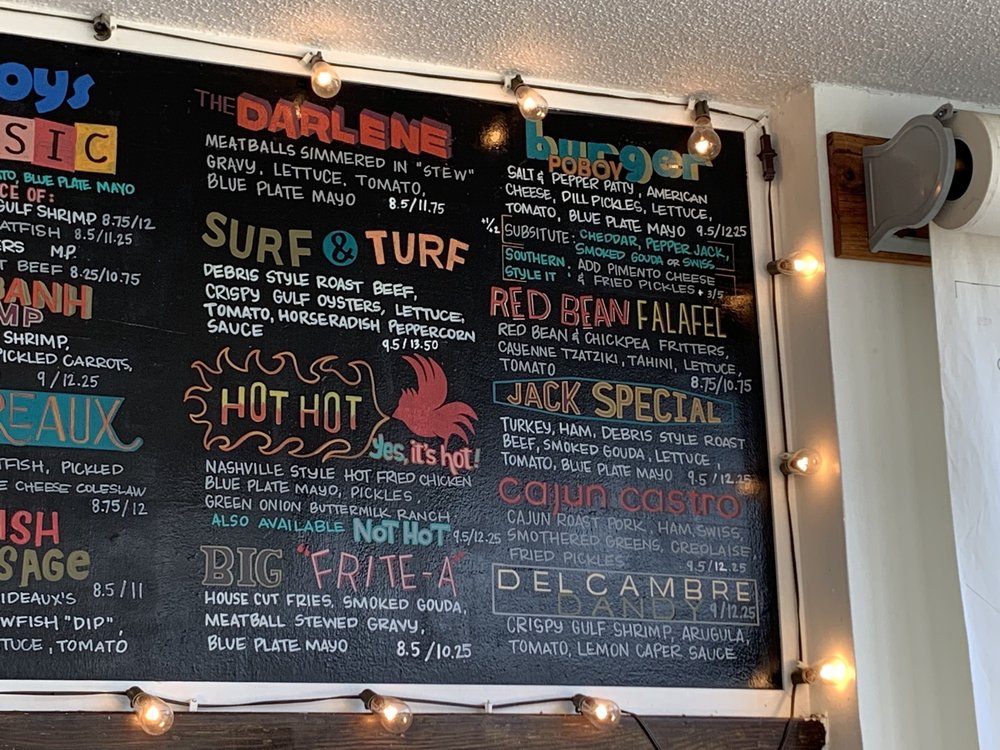 oys
SIC
TO, BLUE PLATE MAYO
CE OF:
GULF SHRIMP 8.75/12
ATFISH 8.5/11.25
ERS M.P.
T BEEF 8.25/10.75
BANH
MP
SHRIMP,
PICKLED CARROTS,
9/12.25
REAUX
TFISH, PICKLED
E CHEESE COLESLAW
8.75/12
ISH
SAGE
8.5/11
IDEAUX'S
WFISH "DIP",
TUCE, TOMATO
THE DARLENE
MEATBALLS SIMMERED IN "STEW"
GRAVY, LETTUCE, TOMATO,
BLUE PLATE MAYO 8.5/11.75
SURF & TURF
DEBRIS STYLE ROAST BEEF,
CRISPY GULF OYSTERS, LETTUCE,
TOMATO, HORSERADISH PEPPERCORN
SAUCE 9.5/13.50
HOT HOT
yes, it's hot!
NASHVILLE STYLE HOT FRIED CHICKEN
BLUE PLATE MAYO, PICKLES,
GREEN ONION BUTTERMILK RANCH
ALSO AVAILABLE NOT HOT 9.5/12.25
BIG "FRITE-A"
HOUSE CUT FRIES, SMOKED GOUDA,
MEATBALL STEWED GRAVY,
BLUE PLATE MAYO 8.5/10.25
burger
POBOY
SALT & PEPPER PATTY, AMERICAN
CHEESE, DILL PICKLES, LETTUCE,
TOMATO, BLUE PLATE MAYO 9.5/12.25
+1/2 SUBSITUTE: CHEDDAR, PEPPER JACK,
SMOKED GOUDA OR SWISS
SOUTHERN: ADD PIMENTO CHEESE
STYLE IT: & FRIED PICKLES + 3/5
RED BEAN FALAFEL
RED BEAN & CHICKPEA FRITTERS,
CAYENNE TZATZIKI, TAHINI, LETTUCE,
TOMATO 8.75/10.75
JACK SPECIAL
TURKEY, HAM, DEBRIS STYLE ROAST
BEEF, SMOKED GOUDA, LETTUCE,
TOMATO, BLUE PLATE MAYO 9.5/12.25
cajun castro
CAJUN ROAST PORK, HAM, SWISS,
SMOTHERED GREENS, CREOLAISE,
FRIED PICKLES 9.5/12.25
DELCAMBRE
DANDY 9/12.25
CRISPY GULF SHRIMP, ARUGULA,
TOMATO, LEMON CAPER SAUCE